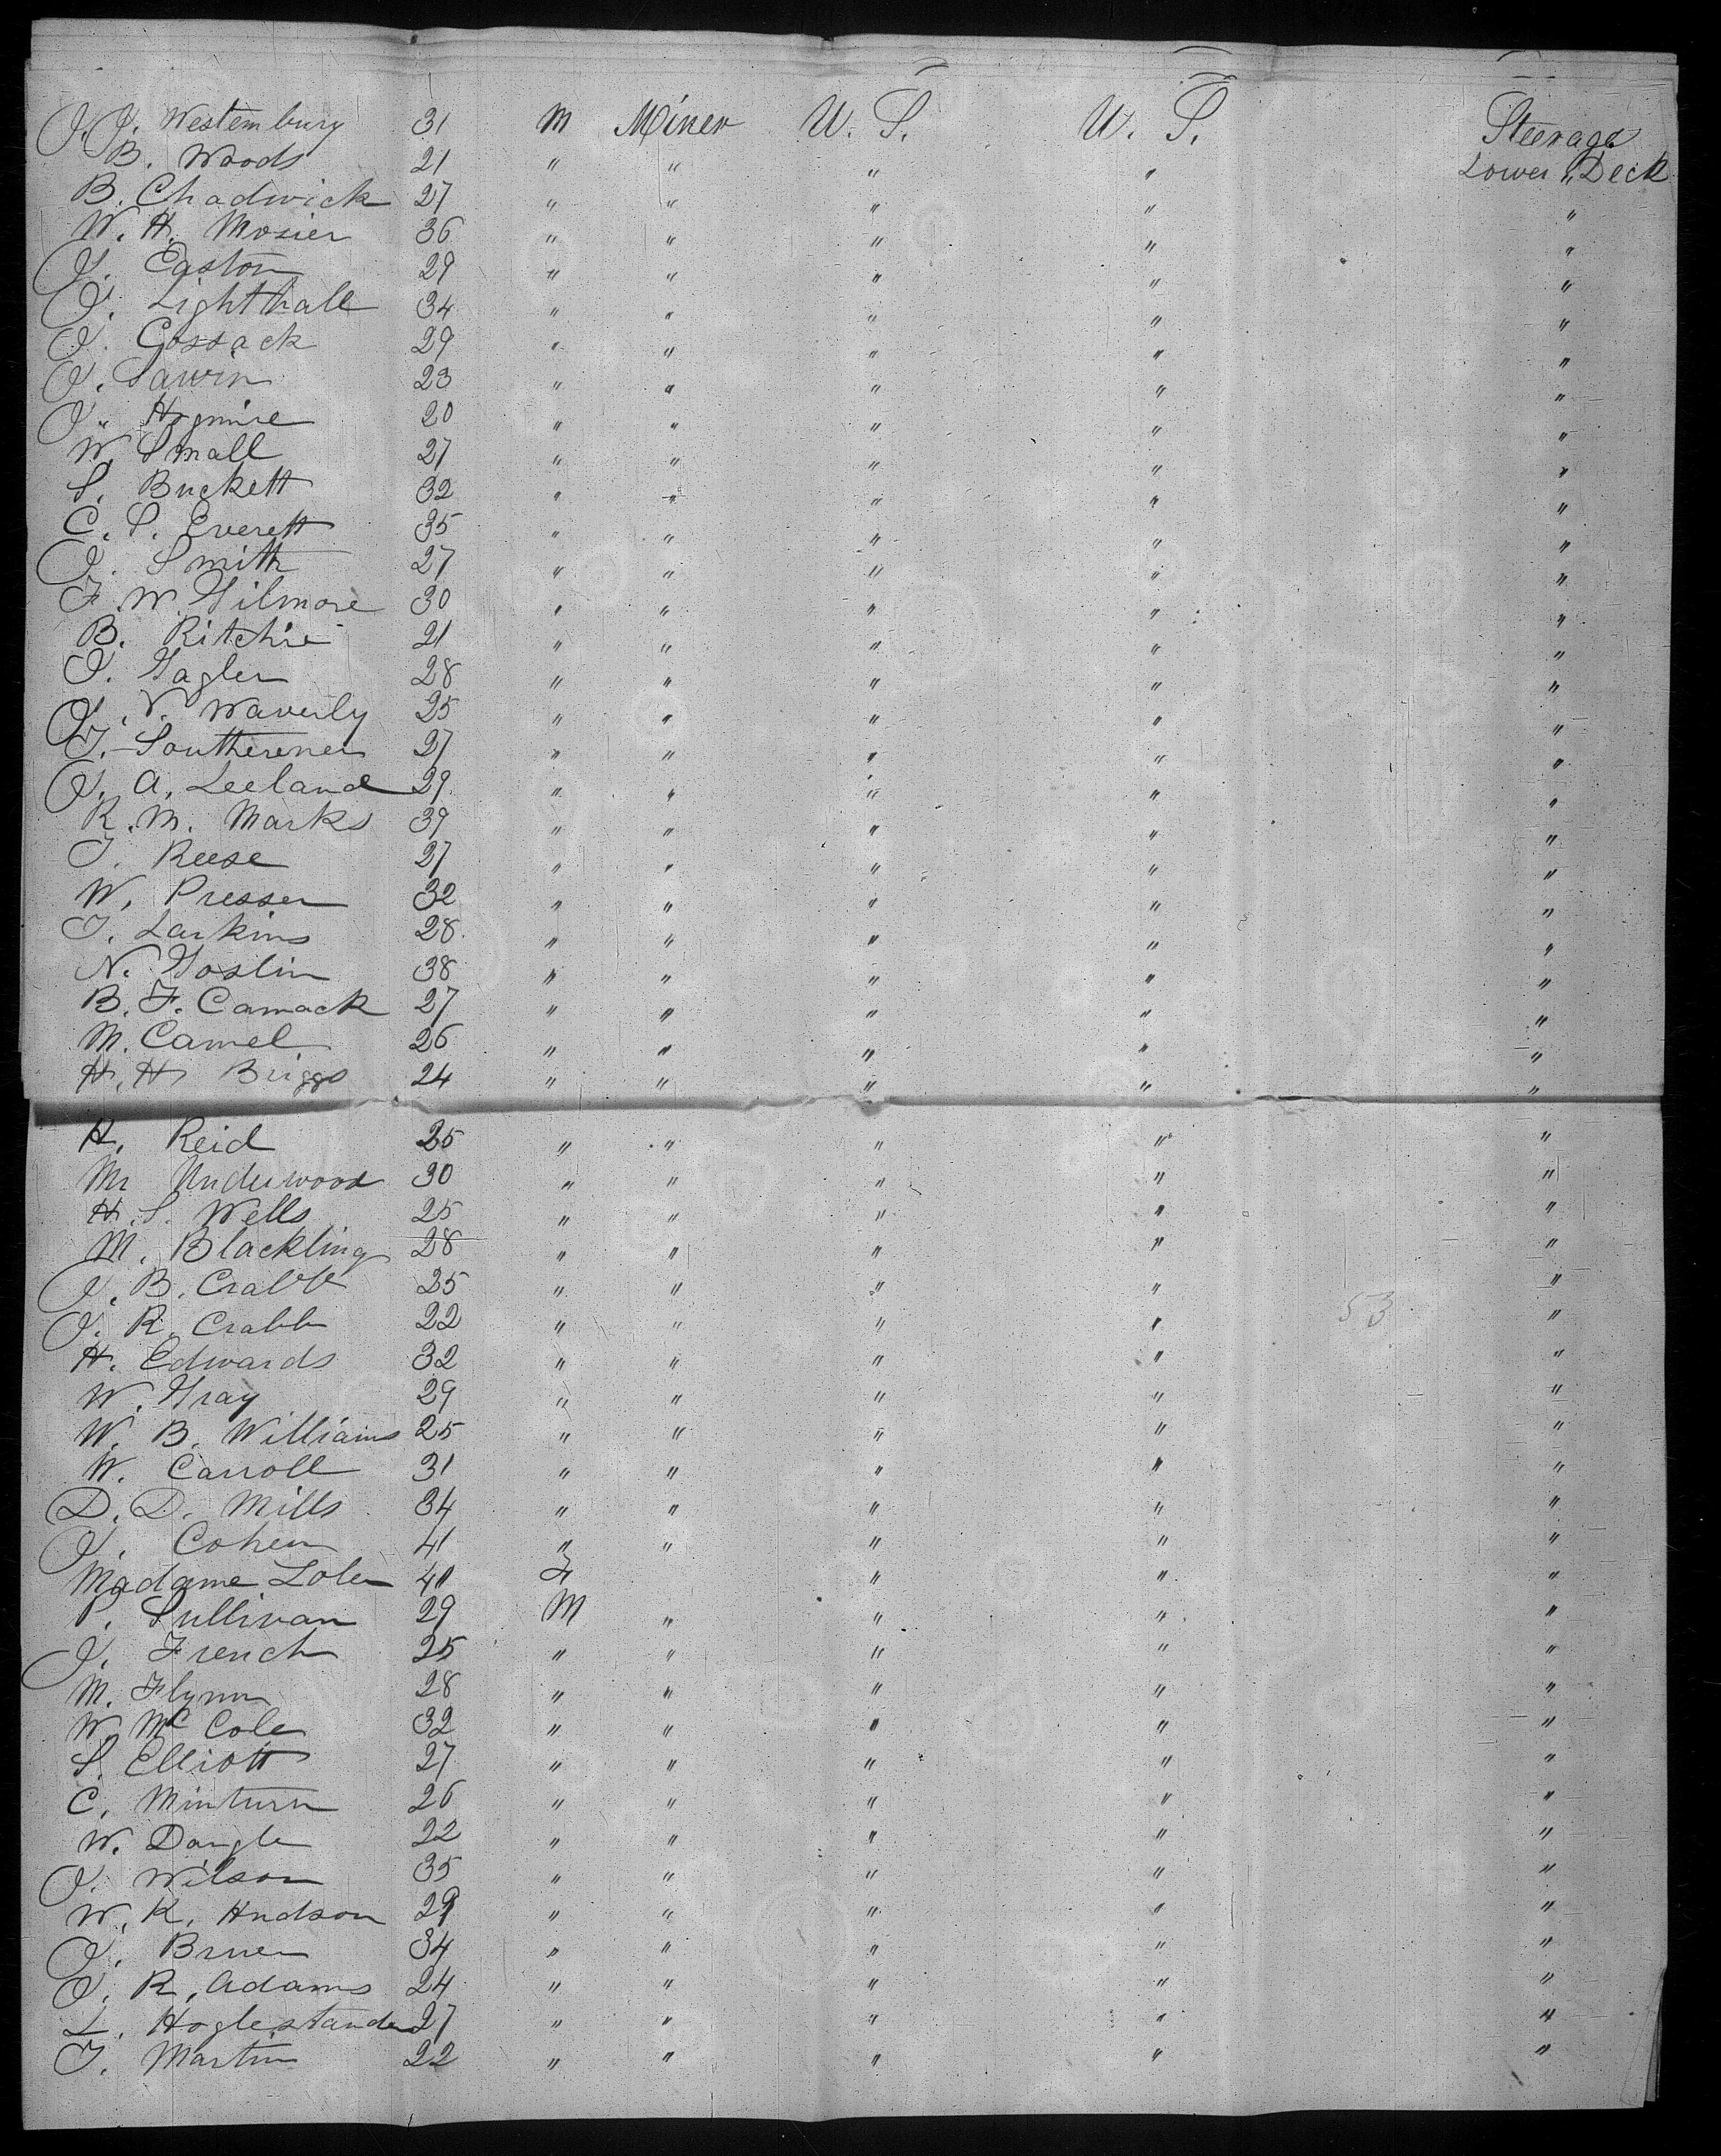 J. J. Westembury 31 M Miner U. S. U. S. Steerage
B. Woods 21 " " " " Lower " Deck
B. Chadwick 27 " " " " "
W. H. Mosier 36 " " " " "
J. Easton 29 " " " " "
J. Lighthall 34 " " " " "
J. Cossack 29 " " " " "
J. Sawin 23 " " " " "
J. Hogmire 20 " " " " "
W. Small 27 " " " " "
S. Buckett 32 " " " " "
C. S. Everett 35 " " " " "
J. Smith 27 " " " " "
F. W. Gilmore 30 " " " " "
B. Ritchie 21 " " " " "
J. Gagler 28 " " " " "
J. V. Waverly 25 " " " " "
T. Southerener 27 " " " " "
J. A. Leeland 29. " " " " "
R. M. Marks 39 " " " " "
T. Reese 27 " " " " "
W. Presser 32 " " " " "
T. Larkins 28. " " " " "
N. Goslin 38 " " " " "
B. F. Camack 27 " " " " "
M. Camel 26 " " " " "
H. H. Briggs 24 " " " " "
H. Reid 25 " " " " "
Mr Underwood 30 " " " " "
H. S. Wells 25 " " " " "
M. Blackling 28 " " " " "
J. B. Crabb 25 " " " " "
J. R. Crabb 22 " " " 53 " "
H. Edwards 32 " " " " "
W. Gray 29 " " " " "
W. B. Williams 25 " " " " "
W. Carroll 31 " " " " "
D. D. Mills 34 " " " " "
J. Cohen 41 " " " " "
Madame Lola 40 F " " "
P. Sullivan 29 M " " " "
J. French 25 " " " " "
M. Flynn 28 " " " " "
W. Mc Cole 32 " " " " "
S. Elliott 27 " " " " "
C. Minturn 26 " " " " "
W. Dangle 22 " " " " "
J. Wilson 35 " " " " "
W. K. Hudson 29 " " " " "
J. Bruer 34 " " " " "
J. R. Adams 24 " " " " "
L. Hoglestander 27 " " " " "
T. Martin 22 " " " " "